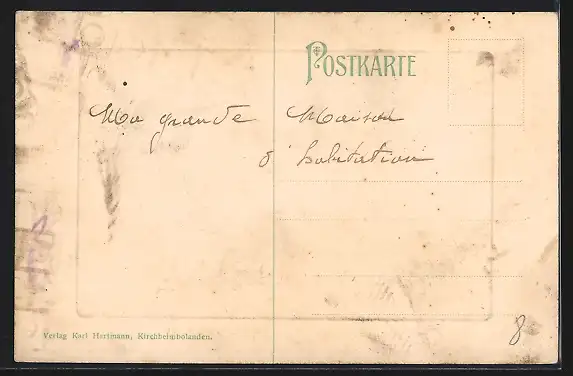 POSTKARTE
Ma grande Maison
d'habitation
Verlag Karl Hartmann, Kirchheimbolanden.
8